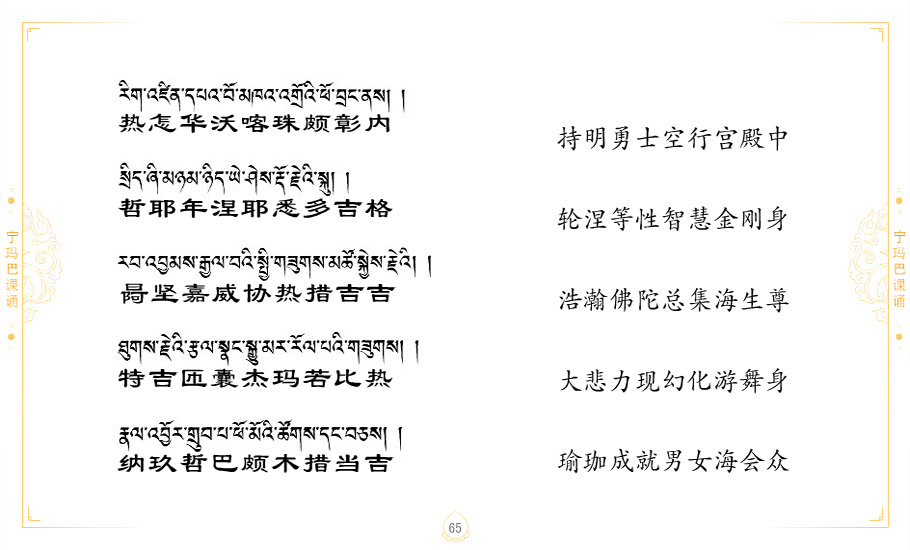 རིག་འཛིན་དཔའ་བོ་མཁའ་འགྲོའི་ཕོ་བྲང་ནས། །
热怎华沃喀珠颇彰内
持明勇士空行宫殿中
སྲིད་ཞི་མཉམ་ཉིད་ཡེ་ཤེས་རྡོ་རྗེའི་སྐུ། །
哲耶年涅耶悉多吉格
轮涅等性智慧金刚身
རབ་འབྱམས་རྒྱལ་བའི་སྤྱི་གཟུགས་མཚོ་སྐྱེས་རྗེའི། །
坚嘉威协热措吉吉
浩瀚佛陀总集海生尊
ཐུགས་རྗེའི་རྩལ་སྣང་སྒྱུ་མར་རོལ་པའི་གཟུགས། །
特吉匝囊杰玛若比热
大悲力现幻化游舞身
རྣལ་འབྱོར་གྲུབ་པ་ཕོ་མོའི་ཚོགས་དང་བཅས། །
纳玖哲巴颇木措当吉
瑜珈成就男女海会众
宁玛巴课诵
宁玛巴课诵
65